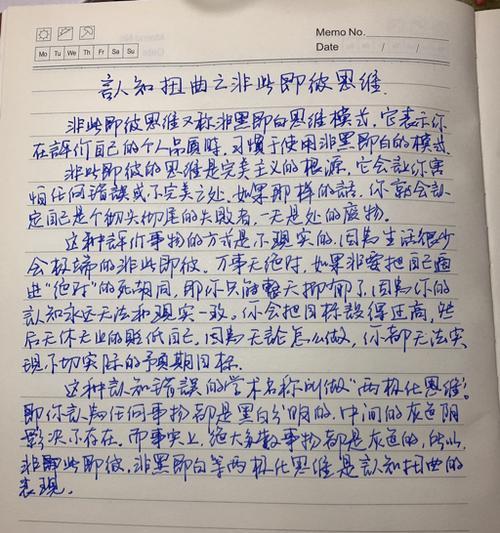 Memo No.
Mo Tu We Th Fr Sa Su
Date / /
認知扭曲之非此即彼思维
非此即彼思维又称非黑即白思维模式,它表示你
在評价自己的个人品质時,习惯于使用非黑即白的模式.
非此即彼的思维是完美主义的根源.它会让你害
怕任何错误或不完美之处.如果那样的話,你就会認
定自己是个彻头彻尾的失败者,一无是处的废物.
这种評价事物的方式是不現实的.因為生活很少
会极端的非此即彼.万事无绝对,如果非要把自己逼
进"绝对"的死胡同,那你只能整天抑郁了.因為你的
認知永远无法和現实一致.你会把目标設得过高,然
后无休无止的贬低自己.因為无論怎么做,你都无法实
現不切实际的预期目标.
这种認知错誤的学术名称叫做"两极化思维".
即你認為任何事物都是黑白分明的.中间的灰色阴
影次不存在.而事实上,绝大多数事物都是灰色的,所以,
非此即彼,非黑即白等两极化思维是認知扭曲的
表現.